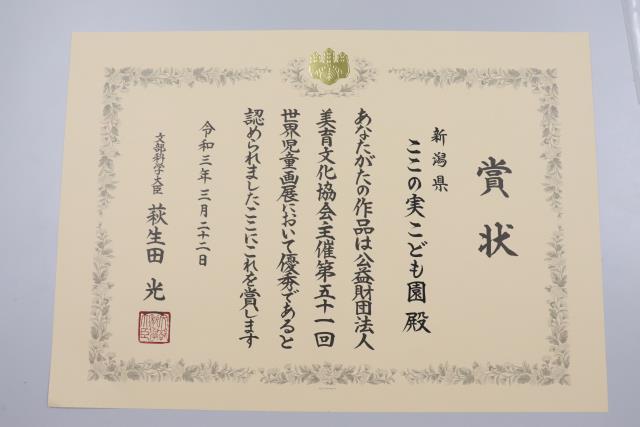 賞状
新潟県
ここの実こども園 殿
あなたがたの作品は公益財団法人
美育文化協会主催第五十一回
世界児童画展において優秀であると
認められましたここにこれを賞します
令和三年三月二十二日
文部科学大臣 萩生田 光